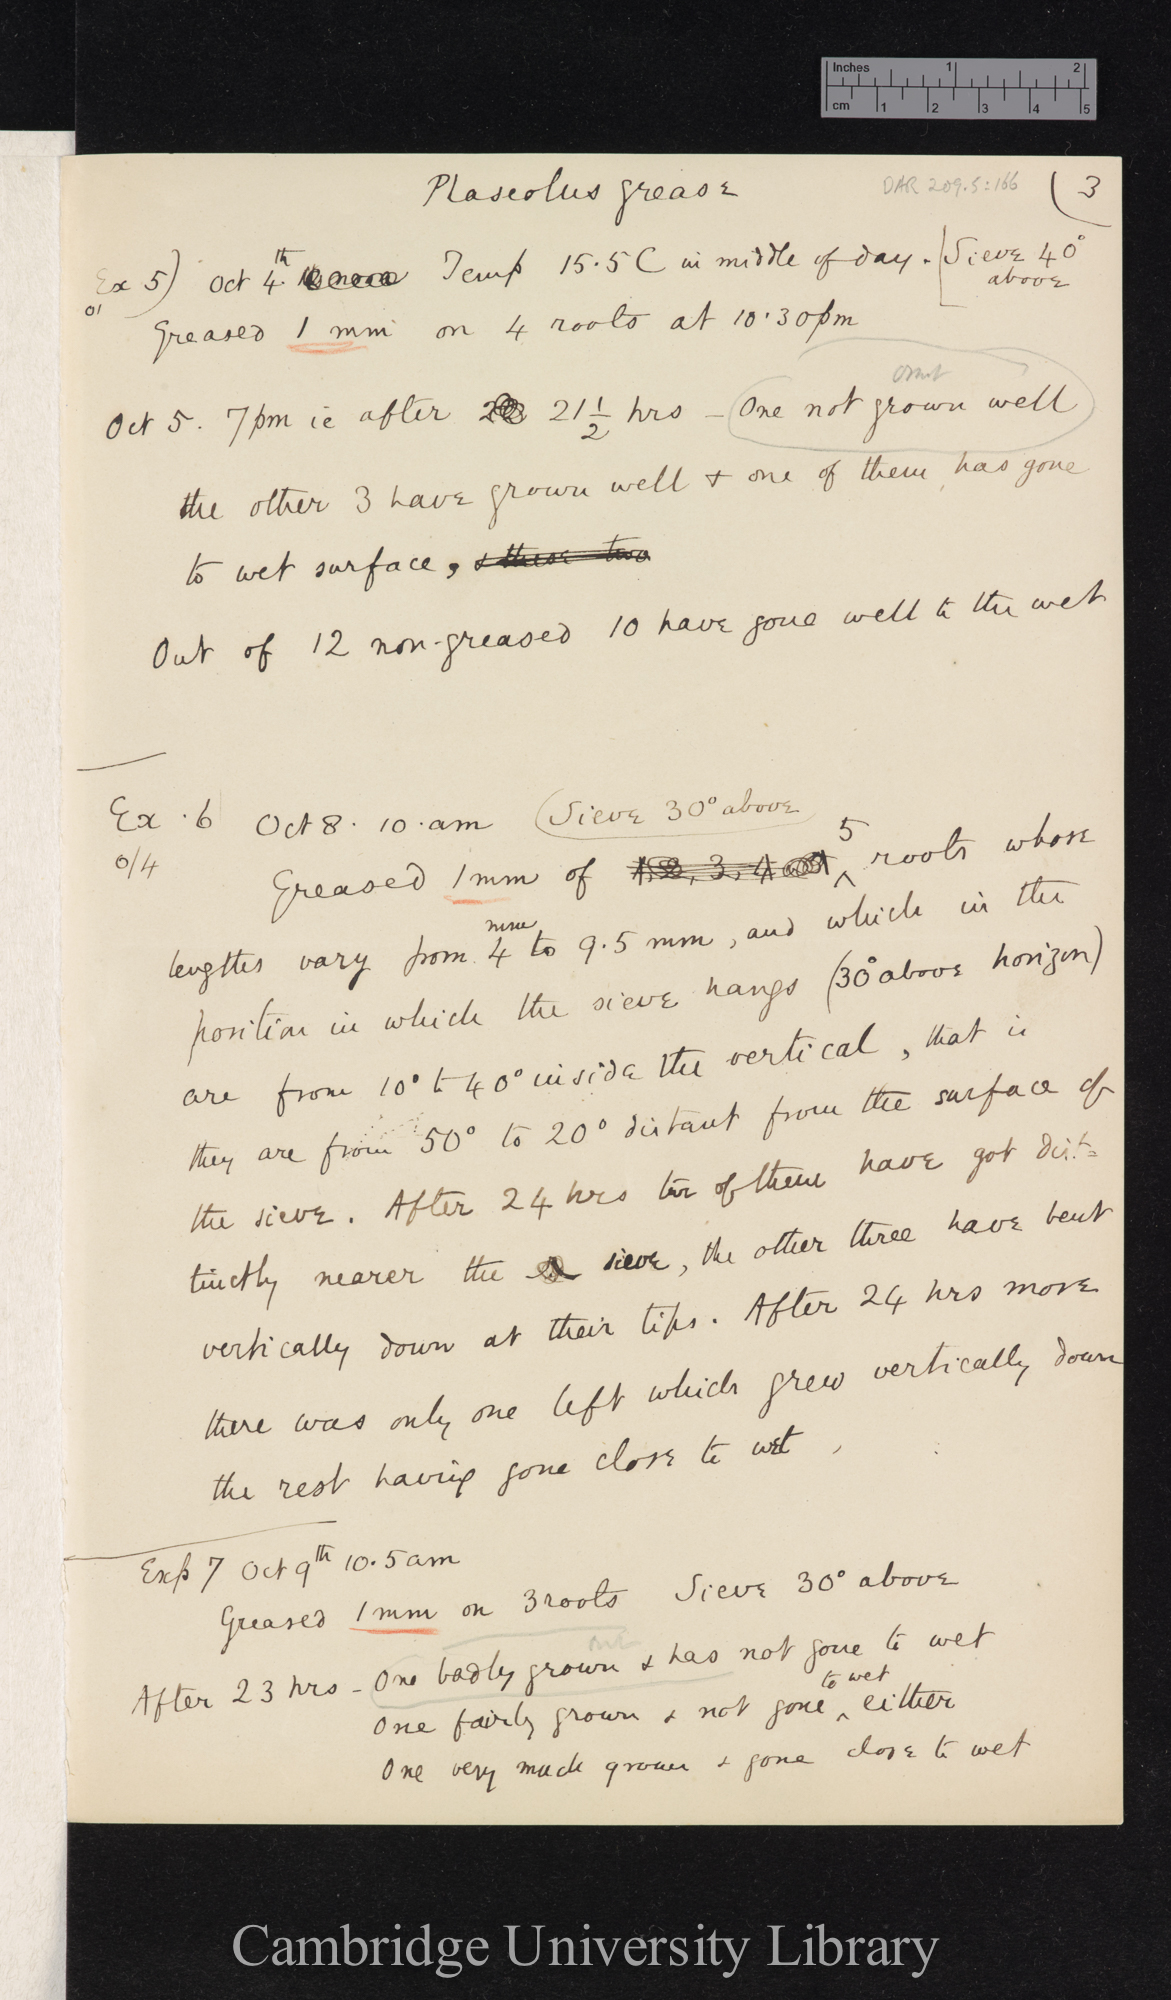 Inches 1 2
cm 1 2 3 4 5
Phaseolus grease
DAR 209.5:166
3
Ex 5) Oct 4th Temp 15.5 C in middle of day. [Sieve 40°
above
Greased 1 mm on 4 roots at 10.30pm
omit
Oct 5. 7pm ie after 21 1/2 hrs – One not grown well
the other 3 have grown well & one of them has gone
to wet surface, & these two
Out of 12 non-greased 10 have gone well to the wet
Ex. 6 Oct 8. 10.am (Sieve 30° above
0/4
5
Greased 1mm of 1, 2, 3, 4 ^ roots whose
mm
lengths vary from 4 to 9.5 mm, and which in the
position in which the sieve hangs (30° above horizon)
are from 10° to 40° inside the vertical, that is
they are from 50° to 20° distant from the surface of
the sieve. After 24 hrs two of them have got dist=
tinctly nearer the sieve, the other three have bent
vertically down at their tips. After 24 hrs more
there was only one left which grew vertically down
the rest having gone close to wet,
Exp 7 Oct 9th 10.5am
Greased 1mm on 3 roots Sieve 30° above
omit
After 23 hrs – One badly grown & has not gone to wet
to wet
One fairly grown & not gone ^ either
One very much grown & gone close to wet
Cambridge University Library